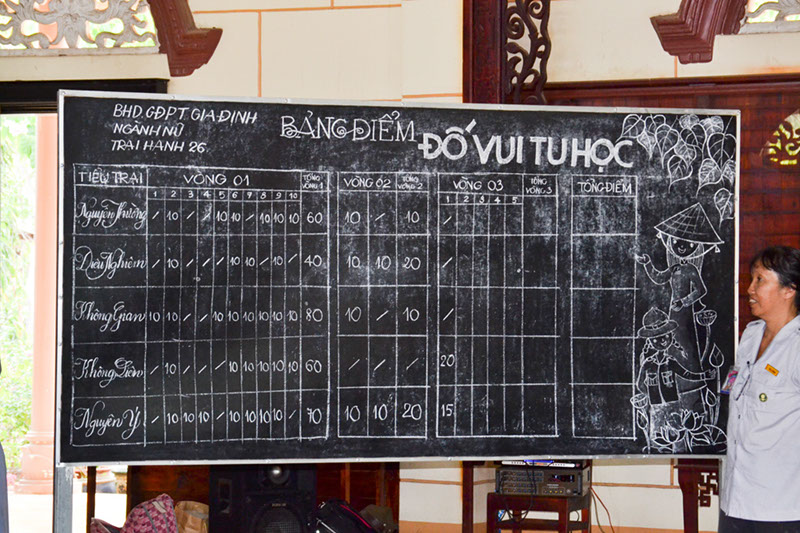 BHD.GĐPT. GIA ĐỊNH
NGÀNH NỮ
TRẠI HẠNH 26.
BẢNG ĐIỂM ĐỐ VUI TU HỌC
TIỂU TRẠI VÒNG 01 TỔNG VÒNG 1 VÒNG 02 TỔNG VÒNG 2 VÒNG 03 TỔNG VÒNG 3 TỔNG ĐIỂM
1 2 3 4 5 6 7 8 9 10 1 2 3 4 5
Nguyên / 10 / / 10 10 / 10 10 10 60 10 / 10 /
Diệu Nghiêm / 10 / / 10 10 / 10 / / 40 10 10 20 /
Không Gian 10 10 / / 10 10 10 10 10 10 80 10 / 10 /
Không / 10 / / / 10 10 10 10 10 60 / / / 20
Nguyên Ý / 10 10 10 / 10 10 10 10 / 70 10 10 20 15